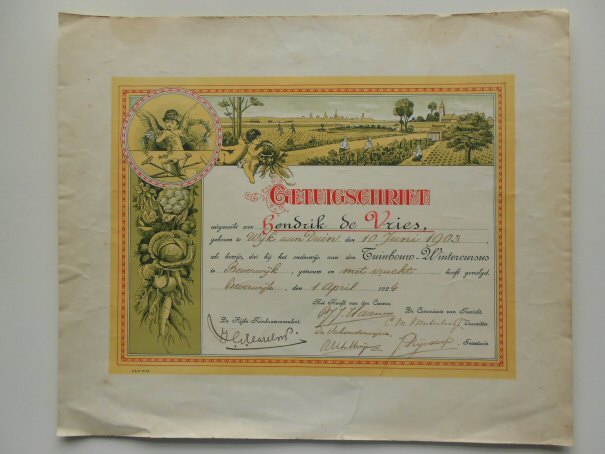 GETUIGSCHRIFT
uitgereikt aan Hendrik de Vries,
geboren te Wijk aan Duin den 10 Juni 1903,
als bewijs, dat hij het onderwijs aan den Tuinbouw-Wintercursus
te Beverwijk, getrouw en met vrucht heeft gevolgd.
Beverwijk, den 1 April 1924
Het Hoofd van den Cursus,
De Commissie van Toezicht,
De Rijks-Tuinbouwconsulent,
Voorzitter
Secretaris